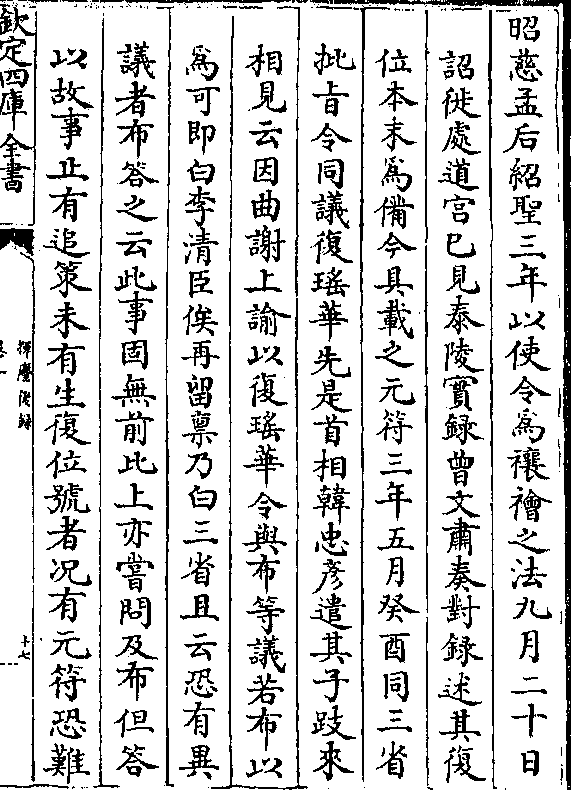 昭慈孟后紹聖三年以使令爲禳禬之法九月二十日
詔徙處道宫已見泰陵實録曾文肅奏對録述其復
位本末爲備今具載之元符三年五月癸酉同三省
批㫖令同議復瑤華先是首相韓忠彦遣其子跂來
相見云因曲謝上諭以復瑤華令與布等議若布以
爲可即白李清臣俟再留禀乃白三省且云恐有異
議者布答之云此事固無前比上亦嘗問及布但答
以故事止有追策未有生復位號者况有元符恐難
欽定四庫全書
揮麈後録
卷一
十七